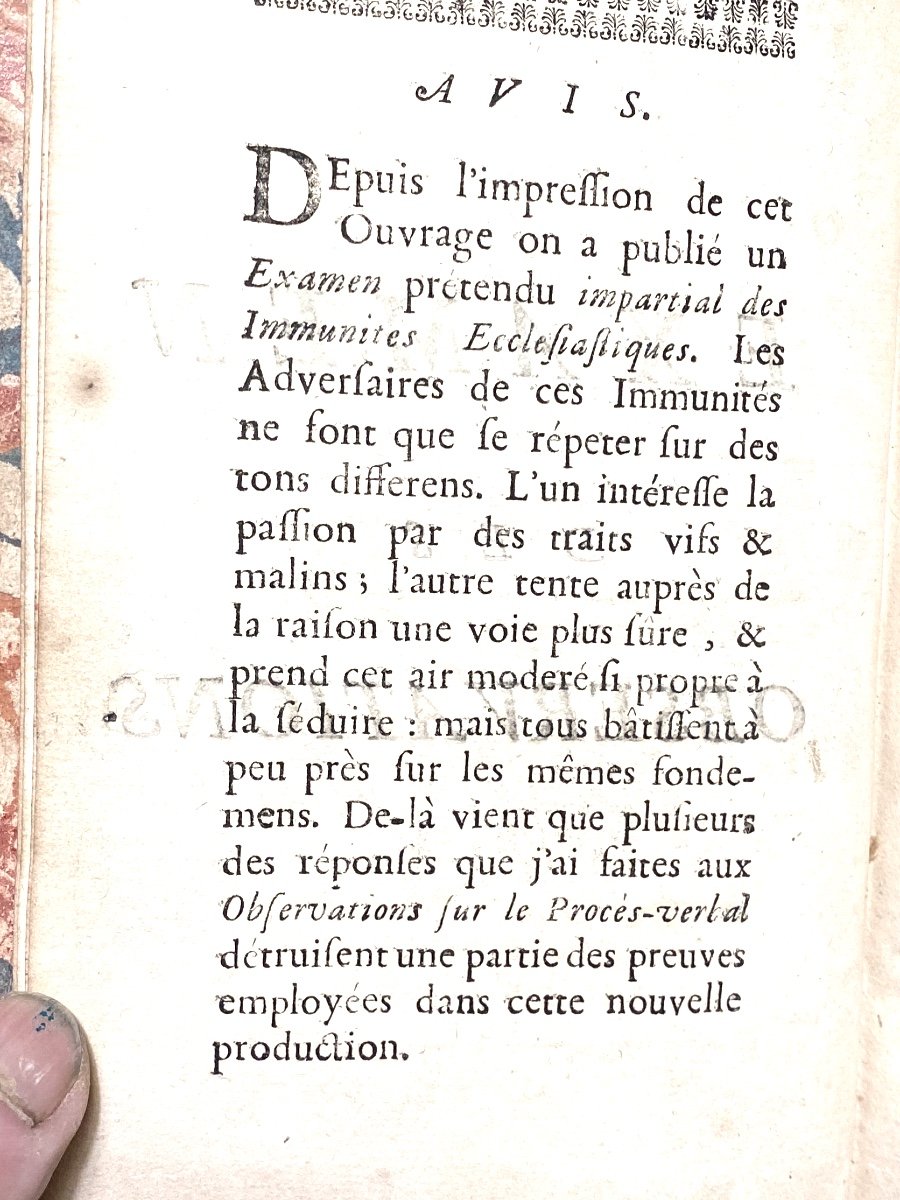 AVIS.
DEpuis l'impreſſion de cet
Ouvrage on a publié un
Examen prétendu impartial des
Immunites Eccleſiaſtiques. Les
Adverſaires de ces Immunités
ne font que ſe répeter ſur des
tons differens. L'un intéreſſe la
paſſion par des traits vifs &
malins ; l'autre tente auprès de
la raiſon une voie plus ſûre , &
prend cet air moderé ſi propre à
la ſéduire : mais tous bâtiſſent à
peu près ſur les mêmes fonde-
mens. De-là vient que pluſieurs
des réponſes que j'ai faites aux
Obſervations ſur le Procès-verbal
détruiſent une partie des preuves
employées dans cette nouvelle
production.